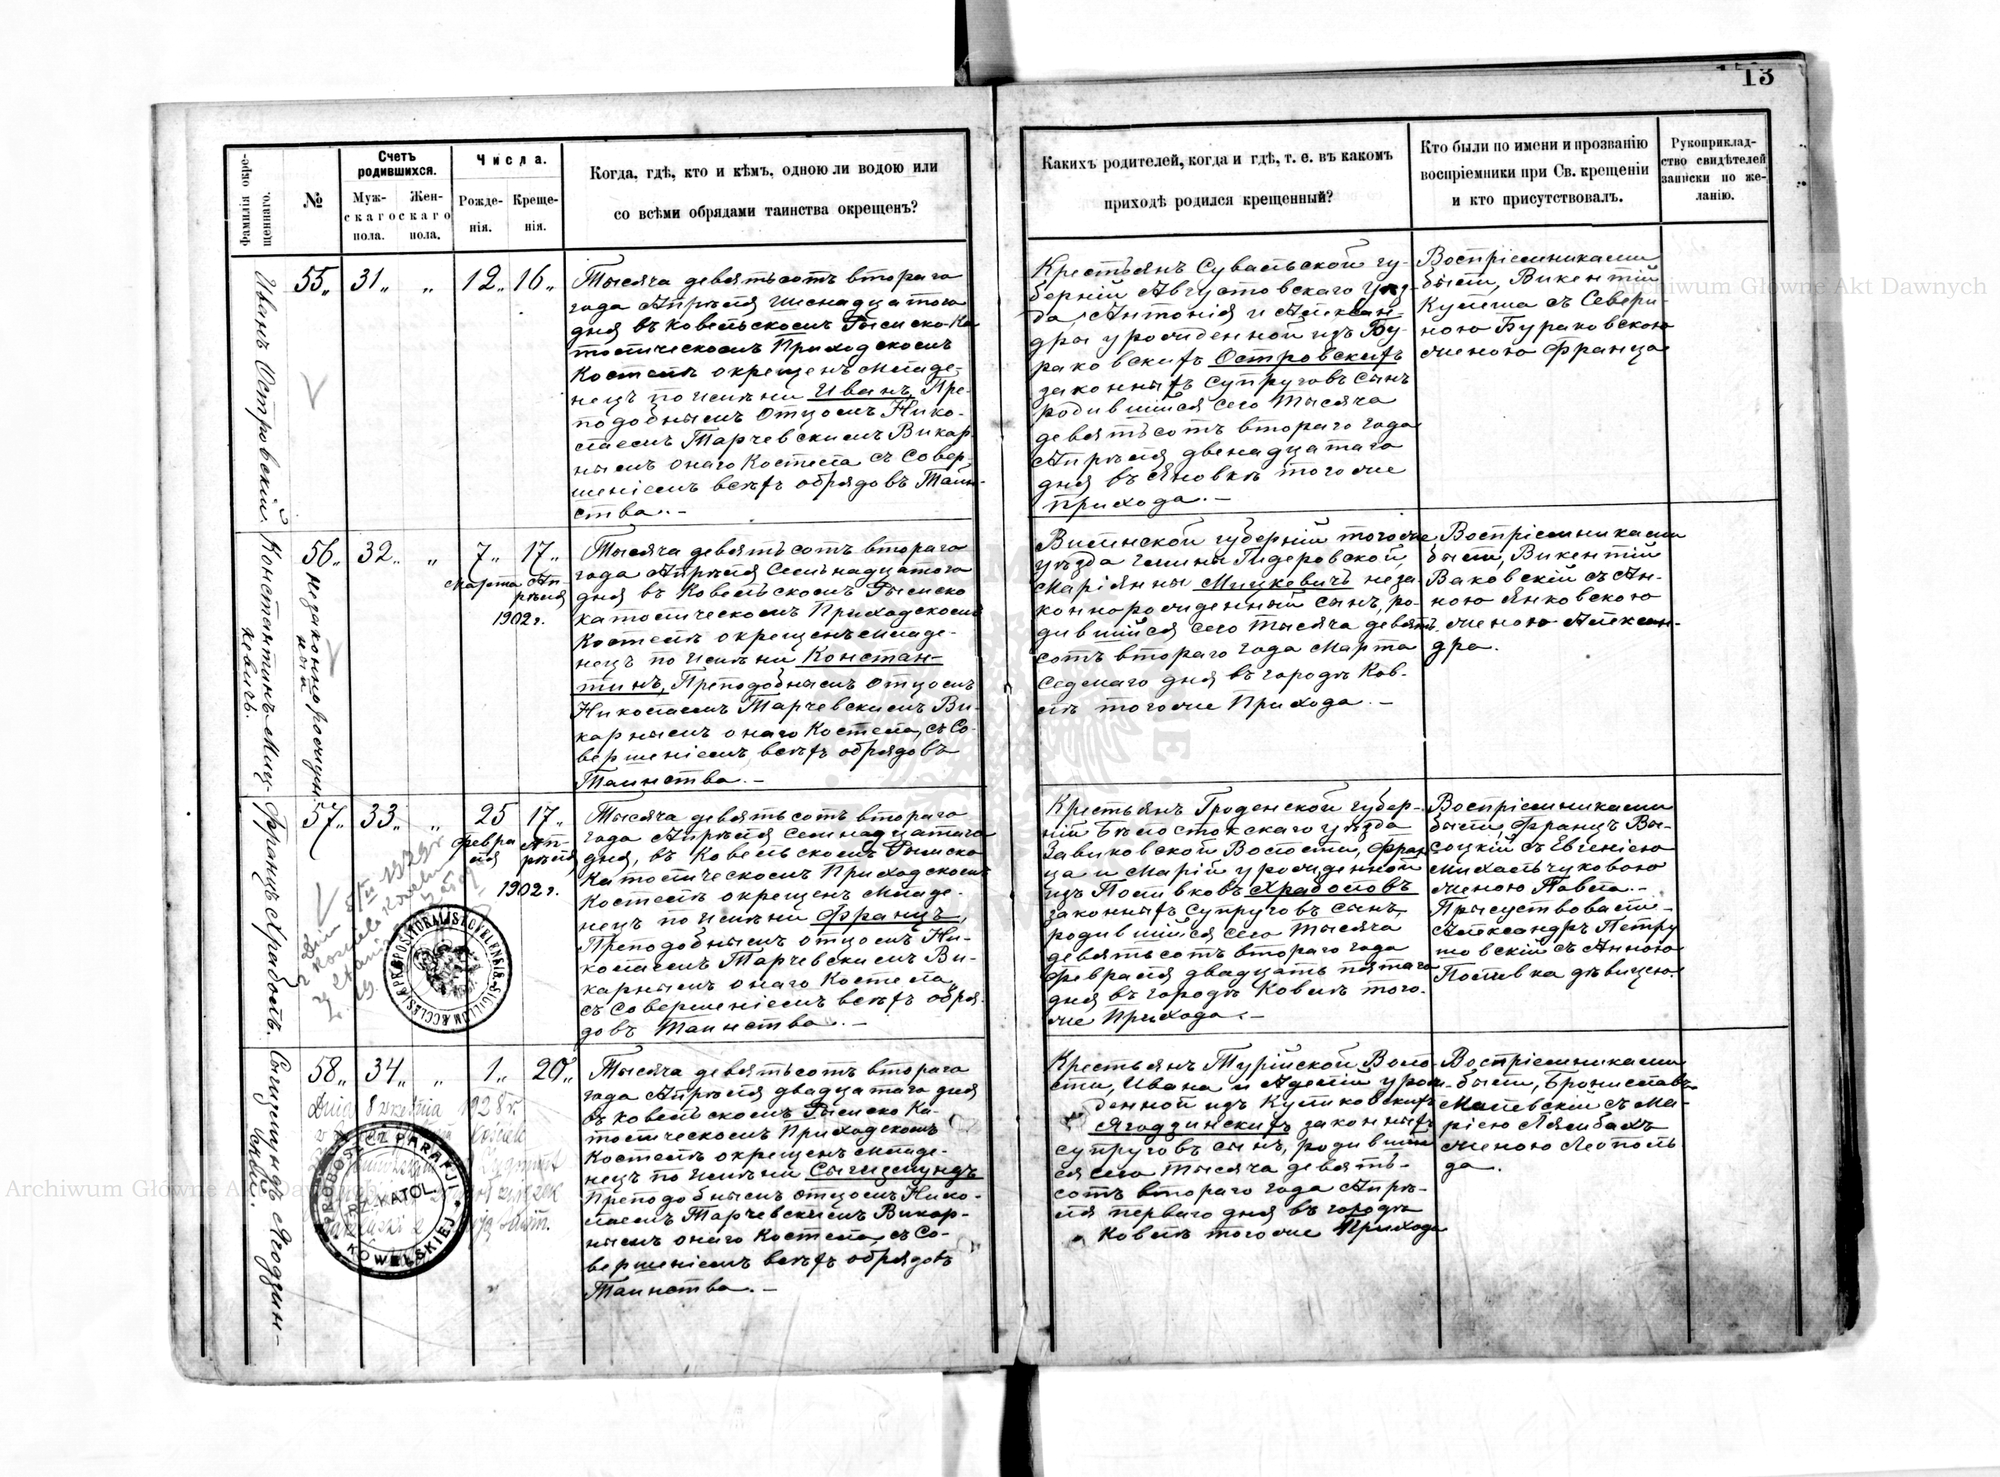 13
Фамилія окре-
щеннаго.
№
Счетъ
родившихся.
Муж-
скаго
пола.
Жен-
скаго
пола.
Числа.
Рожде-
нія.
Креще-
нія.
Когда, гдѣ, кто и кѣмъ, одною ли водою или
со всѣми обрядами таинства окрещенъ?
Какихъ родителей, когда и гдѣ, т. е. въ какомъ
приходѣ родился крещенный?
Кто были по имени и прозванію
воспріемники при Св. крещеніи
и кто присутствовалъ.
Рукоприклад-
ство свидѣтелей
записки по же-
ланію.
Иванъ Островскій.
55„ 31„ „ 12„ 16„
Тысяча девятьсотъ втораго
года Апрѣля шеснадцатого
дня въ Ковельскомъ Римско-Ка
толическомъ Приходскомъ
Костелѣ окрещенъ младе-
нецъ по имени Иванъ, Пре-
подобнымъ Отцомъ Нико-
лаемъ Тарчевскимъ Викар
нымъ онаго Костела, съ совер-
шеніемъ всѣхъ обрядовъ Таин-
ства. –
Крестьянъ Сувальской гу-
берніи Августовскаго уѣз-
да, Антонія и Алексан-
дры урожденной изъ Бу-
раковскихъ Островскихъ
законныхъ супруговъ сынъ
родившійся сего тысяча
девятьсотъ втораго года
Апрѣля двенадцатаго
дня въ Яновкѣ тогоже
прихода. –
Воспріемниками
были, Викентій
Кулеша съ Севери-
ною Бураковскою
женою Франца
Константинъ Миц-
кевичъ.
56„ 32„ „ 7„ 17„
незаконнорожден-
ный
Марта Ап-
рѣля
1902 г.
Тысяча девятьсотъ втораго
года Апрѣля семнадцатого
дня въ Ковельскомъ Римско
католическомъ Приходскомъ
Костелѣ окрещенъ младе-
нецъ по имени Констан-
тинъ, Преподобнымъ отцомъ
Николаемъ Тарчевскимъ Ви-
карнымъ онаго Костела, съ со-
вершеніемъ всѣхъ обрядовъ
Таинства. –
Виленской губерніи тогоже
уѣзда гмины Гидеровской,
Маріянны Мицкевичъ неза-
коннорожденный сынъ, ро-
дившійся сего тысяча девять-
сотъ втораго года Марта
седмаго дня въ городѣ Ков-
лѣ тогоже Прихода. –
Воспріемниками
были, Викентій
Ваковскій съ Ан-
ною Янковскою
женою Алексан-
дра.
Францъ Храболъ.
57„ 33„ „ 25 17„
Февра Ап-
ля рѣля
1902 г.
Тысяча девятьсотъ втораго
года Апрѣля семнадцатаго
дня, въ Ковельскомъ Римско
Католическомъ Приходскомъ
Костелѣ окрещенъ младе-
нецъ по имени Францъ,
Преподобнымъ отцомъ Ни-
колаемъ Тарчевскимъ Ви-
карнымъ онаго Костела,
съ совершеніемъ всѣхъ обря-
довъ Таинства. –
Крестьянъ Гроденской губер-
ніи Бѣлостокскаго уѣзда
Завиковской Волости, Фран
ца и Маріи урожденной
изъ Поливковъ Храболовъ
законныхъ супруговъ сынъ,
родившійся сего тысяча
девятьсотъ втораго года
Февраля двадцать пятаго
дня въ городѣ Ковлѣ того-
же Прихода. –
Воспріемниками
были, Францъ Вы-
соцкій съ Евгеніею
Михальчуковою
женою Павла. –
Присуствовали –
Александръ Петру
шовскій съ Анною
Поливка дѣвицею.
Сигизмундъ Ягодзин-
скій.
58„ 34„ „ 1„ 20„
Dnia 8 1928 r.
PROBOSZCZ PARAFJI
RZ.-KATOL.
KOWELSKIEJ
Тысяча девятьсотъ втораго
года Апрѣля двадцатаго дня
въ Ковельскомъ Римско Ка-
толическомъ Приходскомъ
Костелѣ окрещенъ младе-
нецъ по имени Сигизмундъ
Преподобнымъ отцомъ Нико-
лаемъ Тарчевскимъ Викар-
нымъ онаго Костела, съ со-
вершеніемъ всѣхъ обрядовъ
Таинства. –
Крестьянъ Турійской Воло-
сти, Ивана и Аделіи урож-
денной изъ Куликовскихъ
Ягодзинскихъ законныхъ
супруговъ сынъ, родивший
ся сего тысяча девять-
сотъ втораго года Апрѣ-
ля перваго дня въ городѣ
Ковлѣ тогоже Прихода
Воспріемниками
были, Брониславъ
Малевскій съ Ма-
ріею Лямбахъ
женою Леополь
да.
Archiwum Główne Akt Dawnych
Archiwum Główne Akt Dawnych